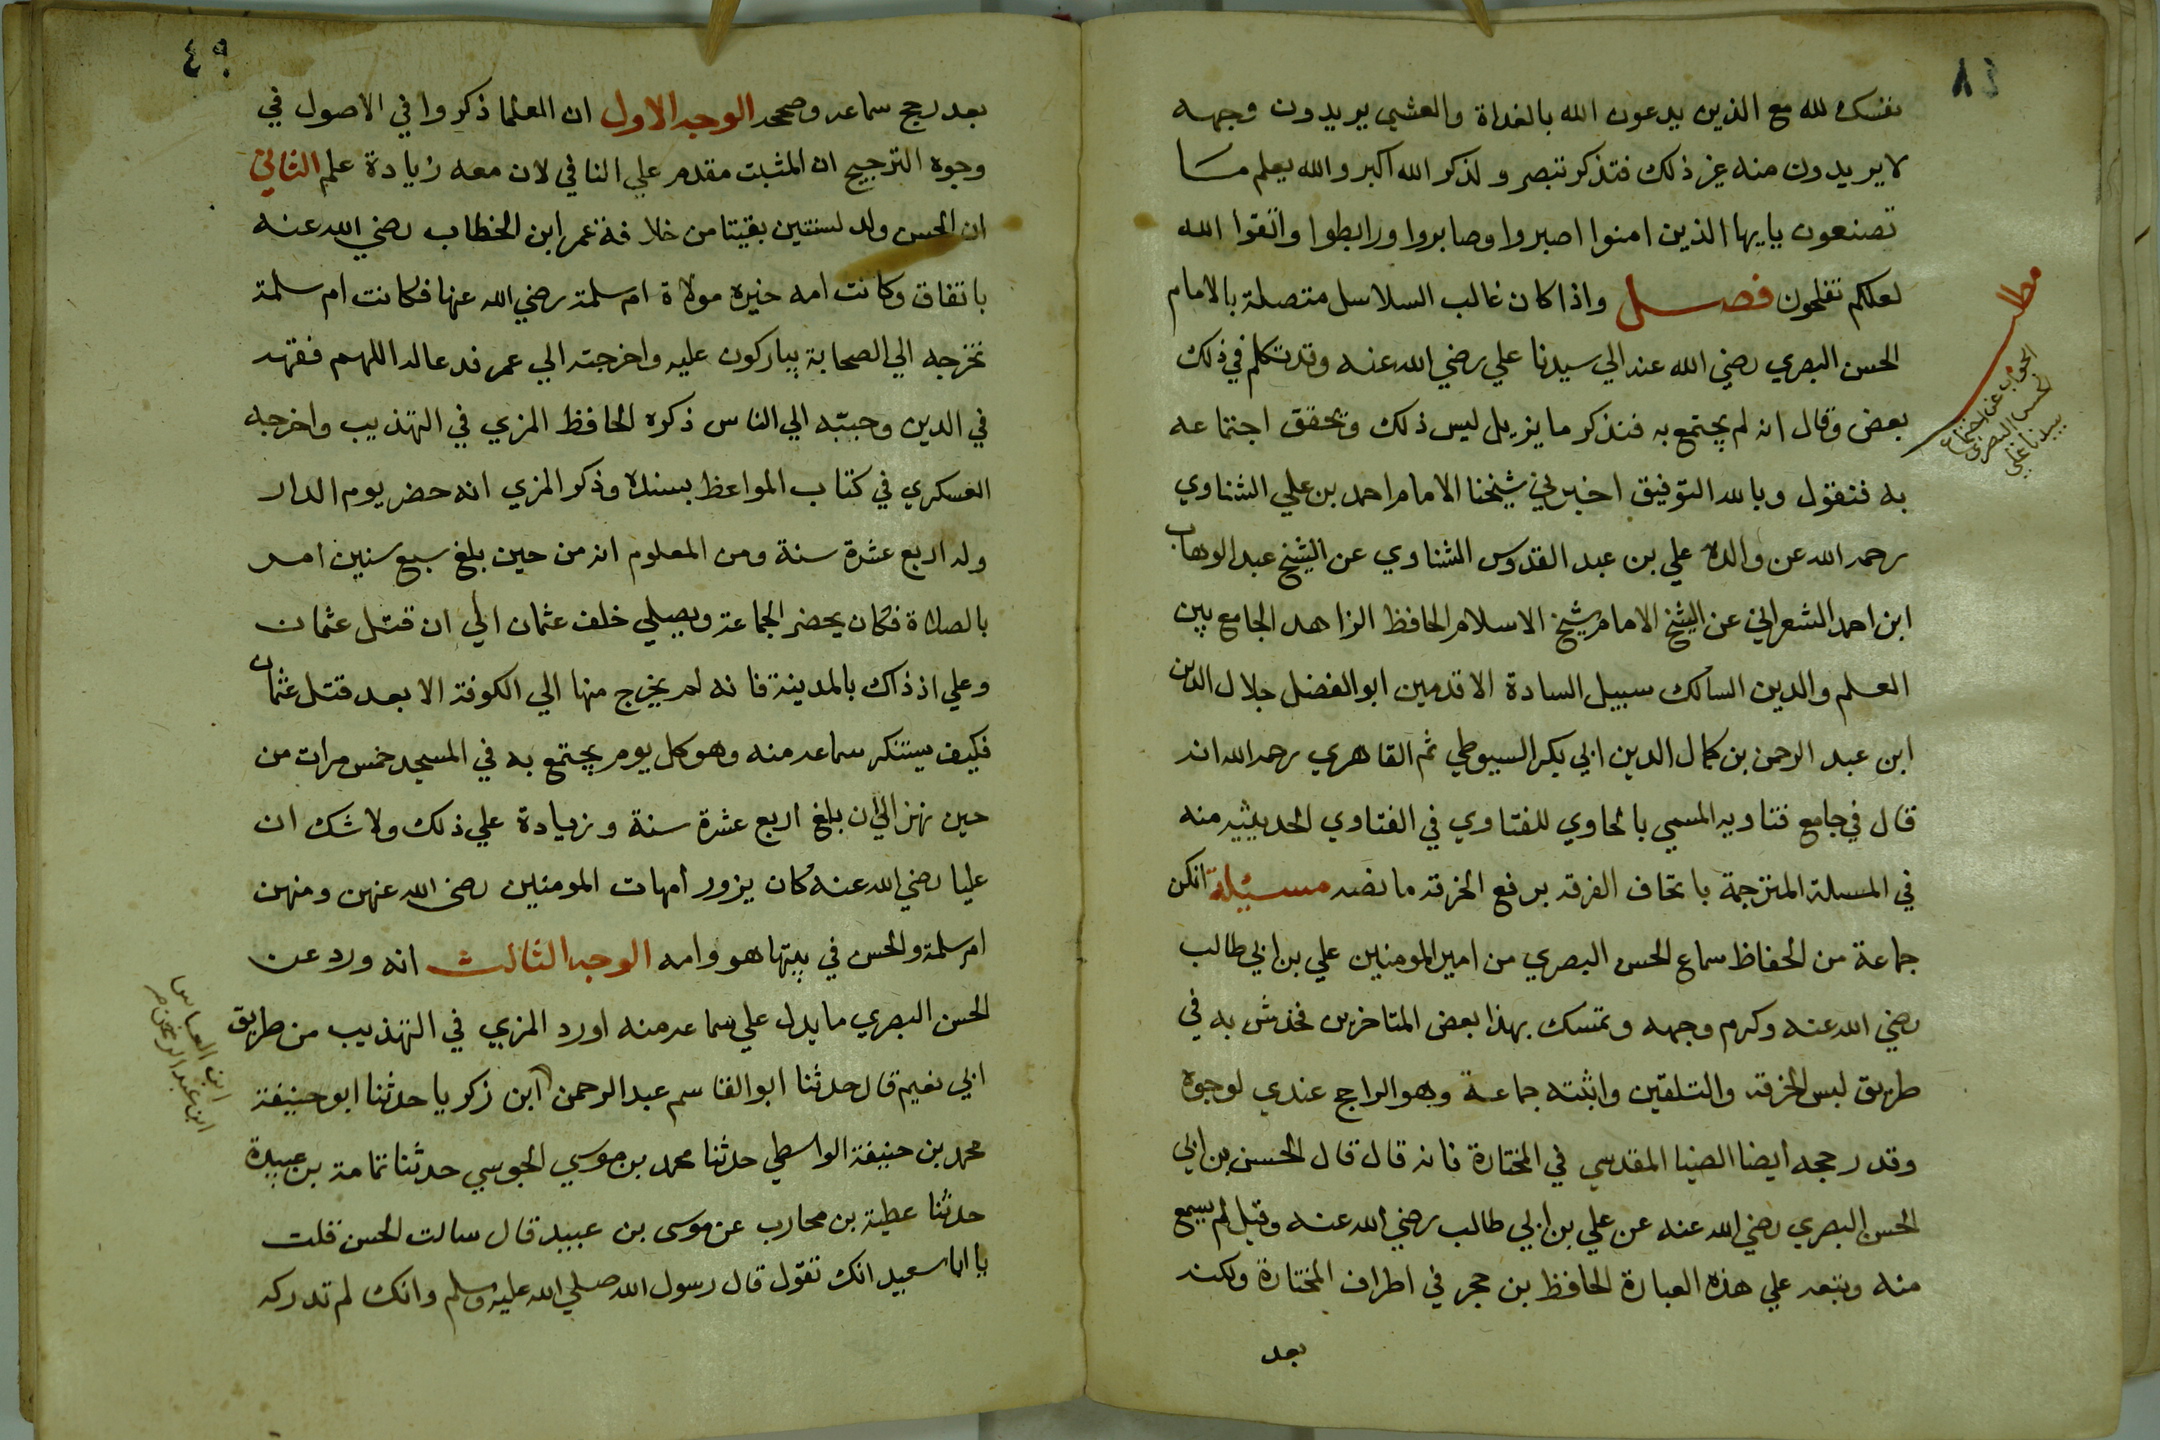 ٤٨
نفسك لله مع الذين يدعون الله بالغداة والعشي يريدون وجهه
لا يريدون منه غير ذلك فتذكر تبصر ولذكر الله اكبر والله يعلم ما
تصنعون يايها الذين امنوا اصبروا وصابروا ورابطوا واتقوا الله
لعلكم تفلحون فصل واذا كان غالب السلاسل متصلة بالامام
الحسن البصري رضي الله عنه الي سيدنا علي رضي الله عنه وقد تكلم في ذلك
بعض وقال انه لم يجتمع به فنذكر ما يزيل ليس ذلك وتحقق اجتماعه
به فنقول وبالله التوفيق اخبرني شيخنا الامام احمد بن علي الشناوي
رحمه الله عن والده علي بن عبد القدوس الشناوي عن الشيخ عبد الوهاب
ابن احمد الشعراني عن الشيخ الامام شيخ الاسلام الحافظ الزاهد الجامع بين
العلم والدين السالك سبيل السادة الاقدمين ابو الفضل جلال الدين
ابن عبد الرحمن بن كمال الدين ابي بكر السيوطي ثم القاهري رحمه الله انه
قال في جامع فتاويه المسمي بالحاوي للفتاوي في الفتاوي الحديثيه منه
في المسلة المترجمة باتحاف الفرقه برفع الخرقه ما نصه مسئلة انكر
جماعة من الحفاظ سماع الحسن البصري من امير المومنين علي بن ابي طالب
رضي الله عنه وكرم وجهه وتمسك بهذا بعض المتاخرين فخدش به في
طريق لبس الخرقه والتلقين واثبته جماعة وهو الراجح عندي لوجوه
وقد رجحه ايضا الضيا المقدسي في المختارة فانه قال قال الحسن بن ابي
الحسن البصري رضي الله عنه عن علي بن ابي طالب رضي الله عنه وقيل لم يسمع
منه وتبعه علي هذه العبارة الحافظ بن حجر في اطراف المختارة ولكنه
بعد
مطلب
الجواب عن اجتماع
الحسن البصري
بسيدنا علي
٤٩
بعد رجح سماعه وصححه الوجه الاول ان العلما ذكروا في الاصول في
وجوه الترجيح ان المثبت مقدم علي النافي لان معه زيادة علم الثاني
ان الحسن ولد لسنتين بقيتا من خلافة عمر ابن الخطاب رضي الله عنه
باتفاق وكانت امه خيره مولاة ام سلمة رضي الله عنها فكانت ام سلمة
تخرجه الي الصحابة يباركون عليه واخرجته الي عمر فدعا له اللهم فقهه
في الدين وحببه الي الناس ذكره الحافظ المزي في التهذيب واخرجه
العسكري في كتاب المواعظ بسنده وذكر المزي انه حضر يوم الدار
وله اربع عشرة سنة ومن المعلوم انه من حين بلغ سبع سنين امر
بالصلاة فكان يحضر الجماعة ويصلي خلف عثمان الي ان قتل عثمان
وعلي اذ ذاك بالمدينة فانه لم يخرج منها الي الكوفة الا بعد قتل عثمان
فكيف يستنكر سماعه منه وهو كل يوم يجتمع به في المسجد خمس مرات من
حين نهز الي ان بلغ اربع عشرة سنة وزيادة علي ذلك ولا شك ان
عليا رضي الله عنه كان يزور امهات المومنين رضي الله عنهن ومنهن
ام سلمة والحسن في بيتها هو وامه الوجه الثالث انه ورد عن
الحسن البصري ما يدل علي سماعه منه اورد المزي في التهذيب من طريق
ابي نعيم قال حدثنا ابو القاسم عبد الرحمن ابن زكريا حدثنا ابو حنيفة
محمد بن حنيفة الواسطي حدثنا محمد بن موسي الجوسي حدثنا ثمامة بن عبيدة
حدثنا عطية بن محارب عن موسى بن عبيد قال سالت الحسن قلت
يا ابا سعيد انك تقول قال رسول الله صلي الله عليه وسلم وانك لم تدركه
ابن العباس
ابن عبد الرحمن